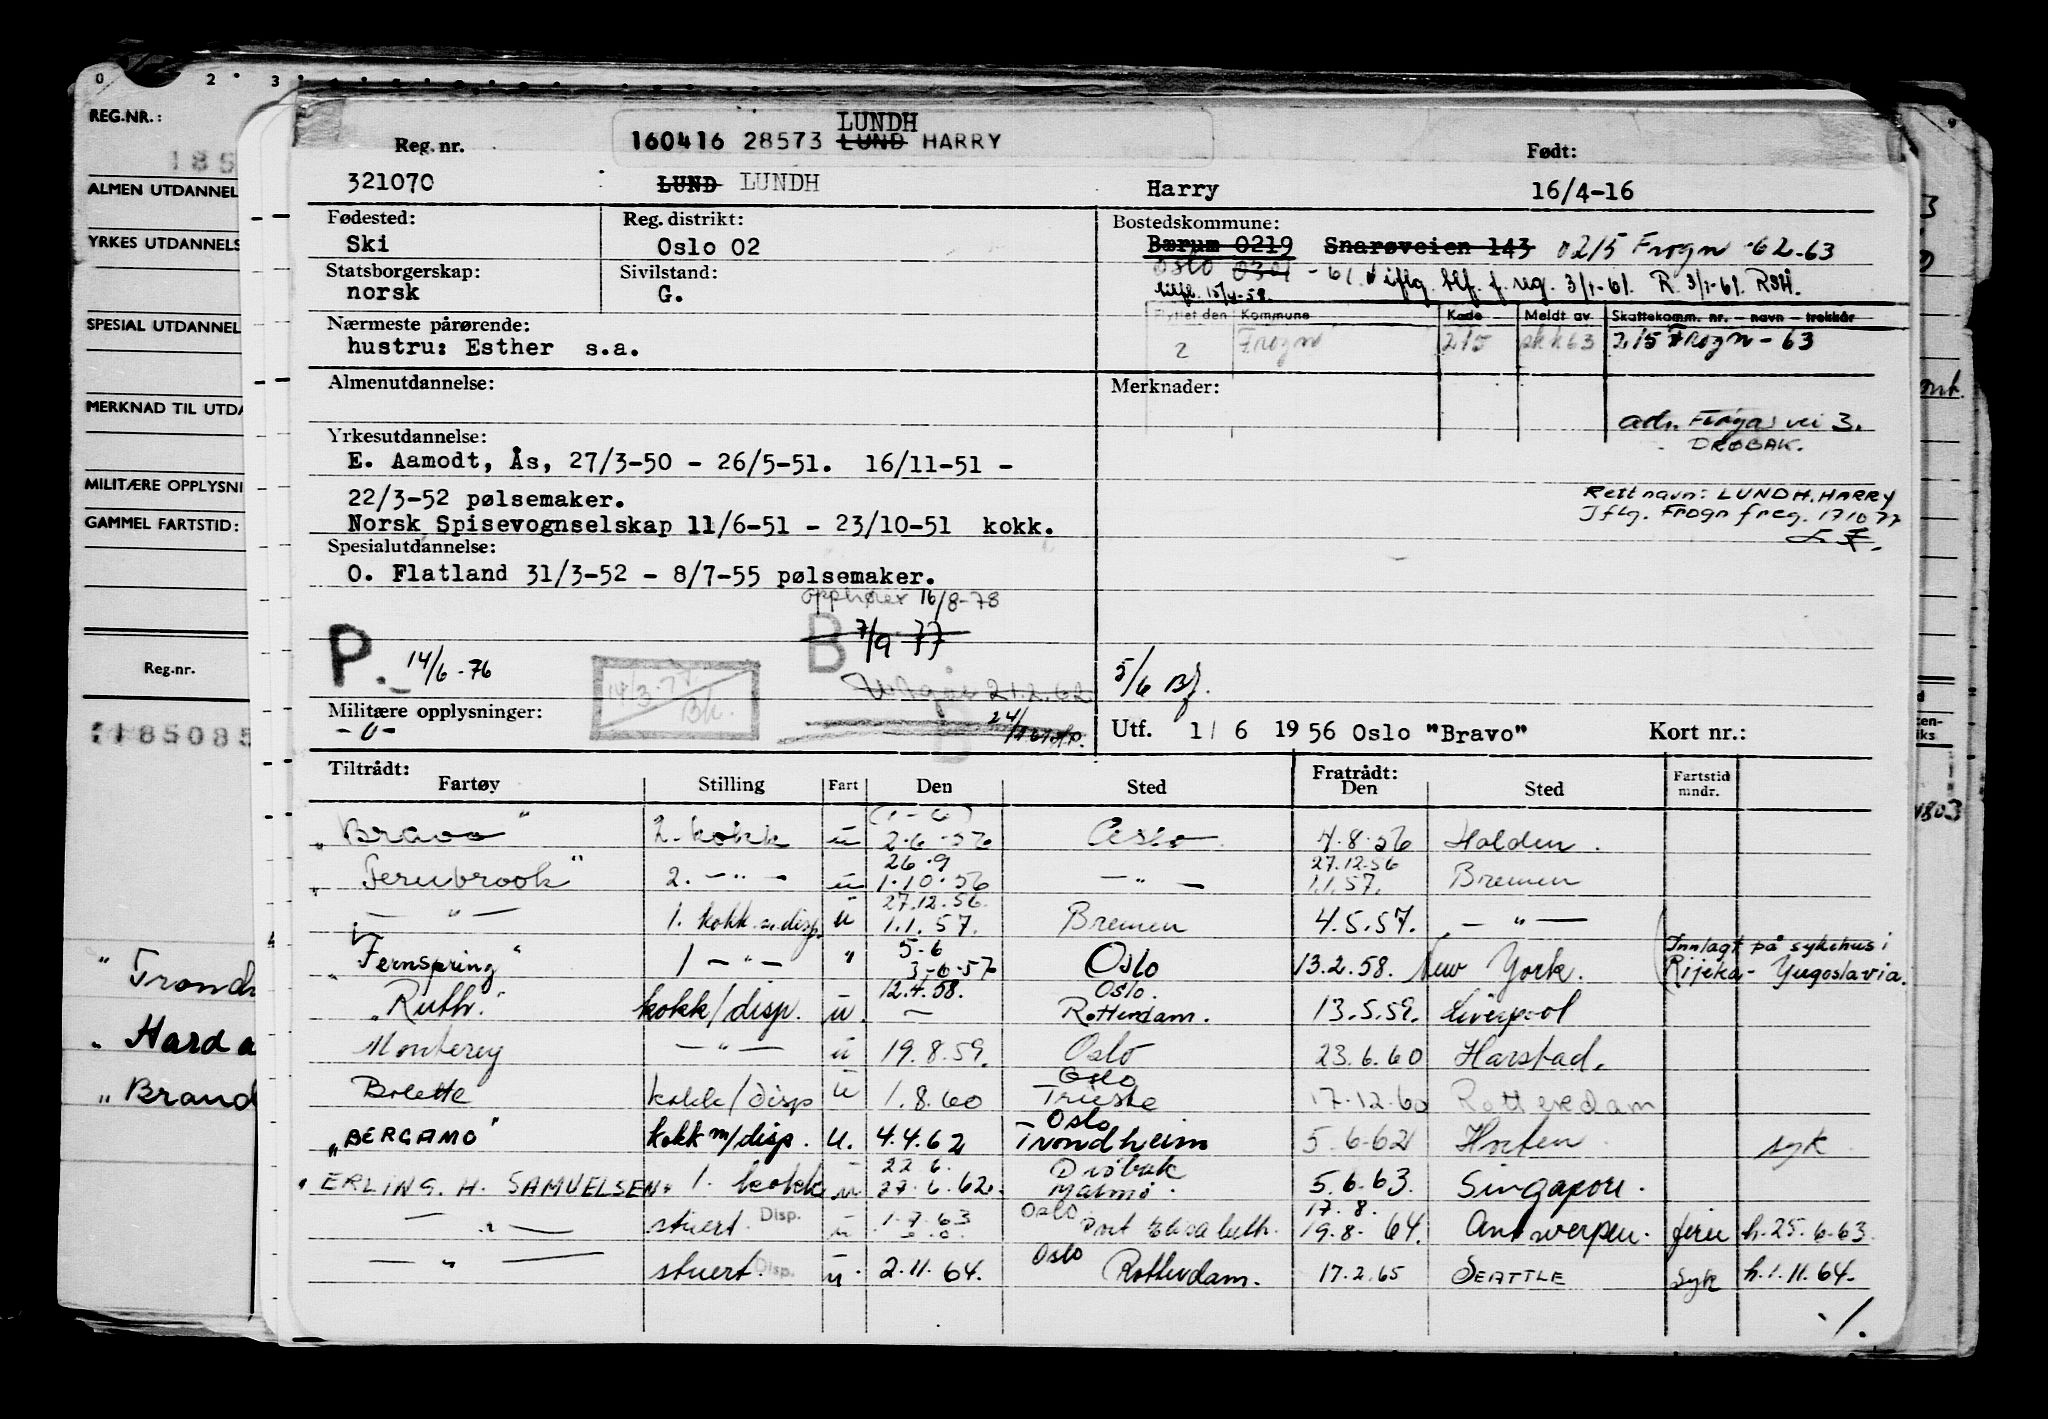 0 2 3
REG.NR.:
185
ALMEN UTDANNEL
YRKES UTDANNELS
SPECIAL UTDANNEL
MERKNAD TIL UTDA
MILITÆRE OPPLYSNI
GAMMEL FARTSTID:
Reg.nr.
185085
" Trondh
" Hard a
" Brand
LUNDH
Reg. nr. 160416 28573 LUND HARRY Født:
321070 LUND LUNDH Harry 16/4-16
Fødested: Reg. distrikt: Bostedskommune:
Ski Oslo 02 Bærum 0219 Snarøveien 143 0215 Frogn -62-63
Statsborgerskap: Sivilstand: Oslo 0301 - 61 iflg. blf. f. reg. 3/1-61. R 3/1-61. RSH.
norsk G. 15/4-58.
Nærmeste pårørende: Flyttet den Kommune Kode Meldt av Skattekomm. nr. — navn — trekkår
hustru: Esther s.a. 2 Frogn 215 skk63 215 Frogn - 63
Almenutdannelse: Merknader:
adr. Frognas vei 3.
DRØBAK.
Yrkesutdannelse:
E. Aamodt, Ås, 27/3-50 - 26/5-51. 16/11-51 -
22/3-52 pølsemaker.
Rett navn: LUNDH. HARRY
Norsk Spisevognselskap 11/6-51 - 23/10-51 kokk.
Iflg. Frogn freg. 171077
Spesialutdannelse:
O. Flatland 31/3-52 - 8/7-55 pølsemaker.
opphører 16/8-78
B 7/9 77
P. 14/6-76
14/3-78 Bk.
Utgår 21.2.62
5/6 BJ.
Militære opplysninger:
- 0 -
B 24/
Utf. 1/ 6 19 56 Oslo "Bravo" Kort nr.:
Tiltrådt: Fratrådt:
Fartøy Stilling Fart Den Sted Den Sted Fartstid mndr.
(1-6)
"Bravo" 2. kokk u 2.6.56 Oslo 4.8.56 Halden.
26.9 27.12.56
" Fernbrook" 2. —"— u 1.10.56 —"— 1.1.57. Bremen
27.12.56.
—"— 1. kokk m disp. u 1.1.57. Bremen 4.5.57. —"—
5-6
"Fernspring" 1 —"— " 3-6-57 Oslo 13.2.58. New York. Innlagt på sykehus i Rijeka - Yugoslavia.
12.4.58. Oslo.
"Ruth." kokk/disp. u. — Rotterdam. 13.5.59. Liverpool
Monterey —"— u 19.8.59. Oslo 23.6.60 Harstad.
Oslo
Bolette kokk/disp u 1.8.60 Trieste 17.12.60 Rotterdam
Oslo
"BERGAMO" kokk m/disp. u. 4.4.62 Trondheim 5.6-62 Horten syk
22 6. Drøbak
" ERLING. H. SAMUELSEN" 1. kokk u 27.6.62. Malmö. 5.6.63. Singapore.
Oslo 17.8.
—"— stuert. Disp. u 1.7.63 Port Elisabeth. 19.8.64. Antwerpen. ferie h. 25.6.63.
Oslo
—"— stuert. Disp. u. 2.11.64. Rotterdam. 17.2.65 SEATTLE syk h. 1.11.64.
1803